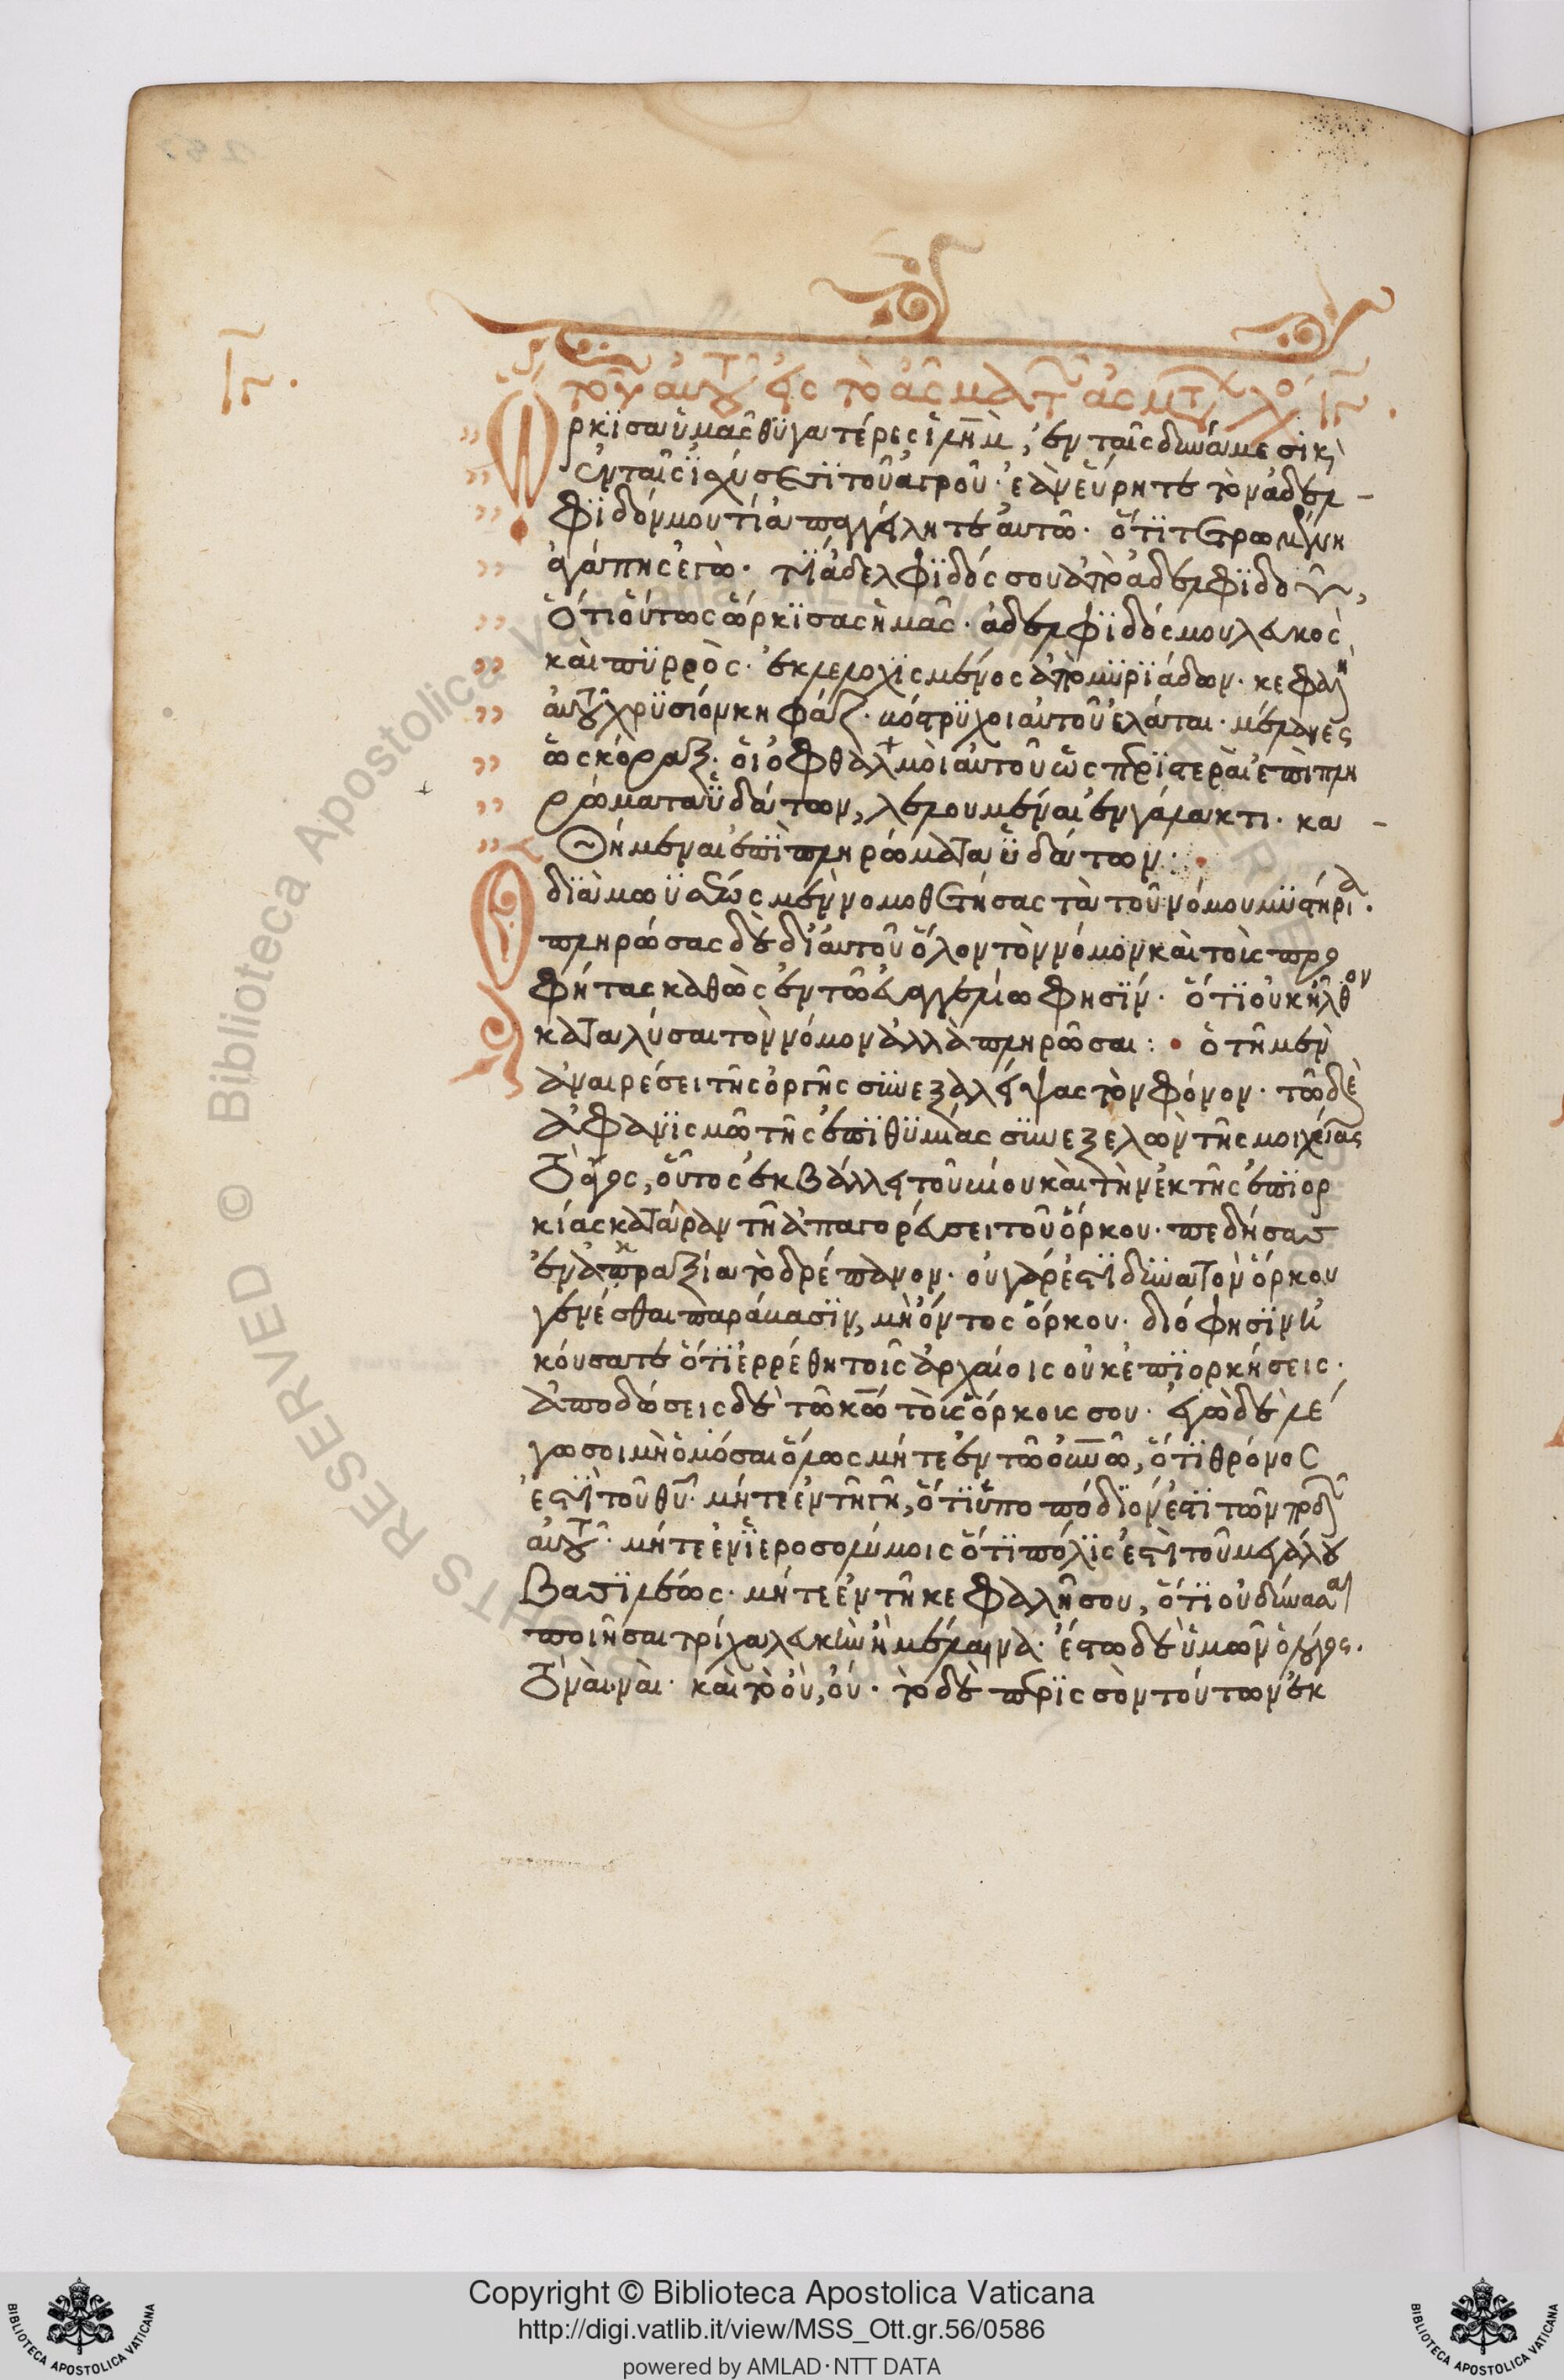 ιγ.
τοῦ αὐτοῦ εἰς τὸ ᾆσμα τῶν ᾀσμάτων λόγος ιγ.
Ὥρκϊσα ὑμᾶς θυγατέρες ἰλημ, ἐν ταῖς δυνάμεσι κ
ἐν ταῖς ἰσχύσεσι τοῦ ἀγροῦ· ἐὰν εὕρητε τὸν ἀδελ-
φϊδόν μου τί ἀπαγγείλητε αὐτῶ· ὅτι τετρωμένη
ἀγάπης ἐγώ· τί ἀδελφϊδός σου ἀπὸ ἀδελφϊδοῦ,
ὅτι οὕτως ὥρκϊσας ἡμᾶς· ἀδελφϊδός μου λευκὸς
καὶ πυρρὸς· ἐκλελοχϊσμένος ἀπὸ μυρϊάδων· κεφαλὴ
αὐτοῦ χρυσίον κὴ φάζ· βόστρυχοι αὐτοῦ ἐλάται· μέλανες
ὡς κόραξ· οἱ ὀφθαλμοὶ αὐτοῦ ὡς περϊστεραὶ ἐπὶ πλη
ρώματα ὑδάτων, λελουμέναι ἐν γάλακτι· κα-
θήμεναι ἐπὶ πληρώματα ὑδάτων:
Ὁ διὰ μωϋσέως μὲν νομοθετήσας τὰ τοῦ νόμου μυστήρια.
πληρώσας δὲ δι' αὐτοῦ ὅλον τὸν νόμον καὶ τοὺς προ
φήτας καθὼς ἐν τῶ εὐαγγελίω φησϊν· ὅτι οὐκ ἦλθον
καταλύσαι τὸν νόμον ἀλλὰ πληρῶσαι: ὁ τῆ μὲν
ἀναιρέσει τῆς ὀργῆς συνεξαλείψας τὸν φόνον· τῶ δὲ
ἀφανϊσμῶ τῆς ἐπϊθυμίας συνεξελὼν τῆς μοιχείας
τὸ ἄγος, οὗτος ἐκβάλλει τοῦ βίου καὶ τὴν ἐκ τῆς ἐπϊορ
κίας κατάραν τῆ ἀπαγορεύσει τοῦ ὅρκου· πεδήσας
ἐν ἀπραξία τὸ δρέπανον· οὐ γάρ ἐστϊ δυνατὸν ὅρκου
γενέσθαι παράβασϊν, μὴ ὄντος ὅρκου· διό φησϊν ἠ
κούσατε ὅτϊ ἐρρέθη τοῖς ἀρχαίοις οὐκ ἐπϊορκήσεις·
ἀποδώσεις δὲ τῶ κῶ τοὺς ὅρκους σου· ἐγὼ δὲ λέ
γω σοι μὴ ὀμόσαι ὅλως μήτε ἐν τῶ οὐνῶ, ὅτϊ θρόνος
ἐστϊ τοῦ θυ· μήτε ἐν τῆ γῆ, ὅτϊ ὑποπόδϊόν ἐστϊ τῶν ποδῶν
αὐτοῦ· μήτε ἐν ἱεροσολύμοις ὅτϊ πόλϊς ἐστὶ τοῦ μεγάλου
βασϊλέως· μήτε ἐν τῆ κεφαλῆ σου, ὅτϊ οὐ δύνασαι
ποιῆσαι τρίχα λευκὴν ἢ μέλαινα· ἔστω δὲ ὑμῶν ὁ λόγος·
τὸ ναὶ ναὶ· καὶ τὸ οὐ, οὔ· τὸ δὲ περϊσσὸν τούτων ἐκ
Copyright © Biblioteca Apostolica Vaticana
http://digi.vatlib.it/view/MSS_Ott.gr.56/0586
powered by AMLAD·NTT DATA